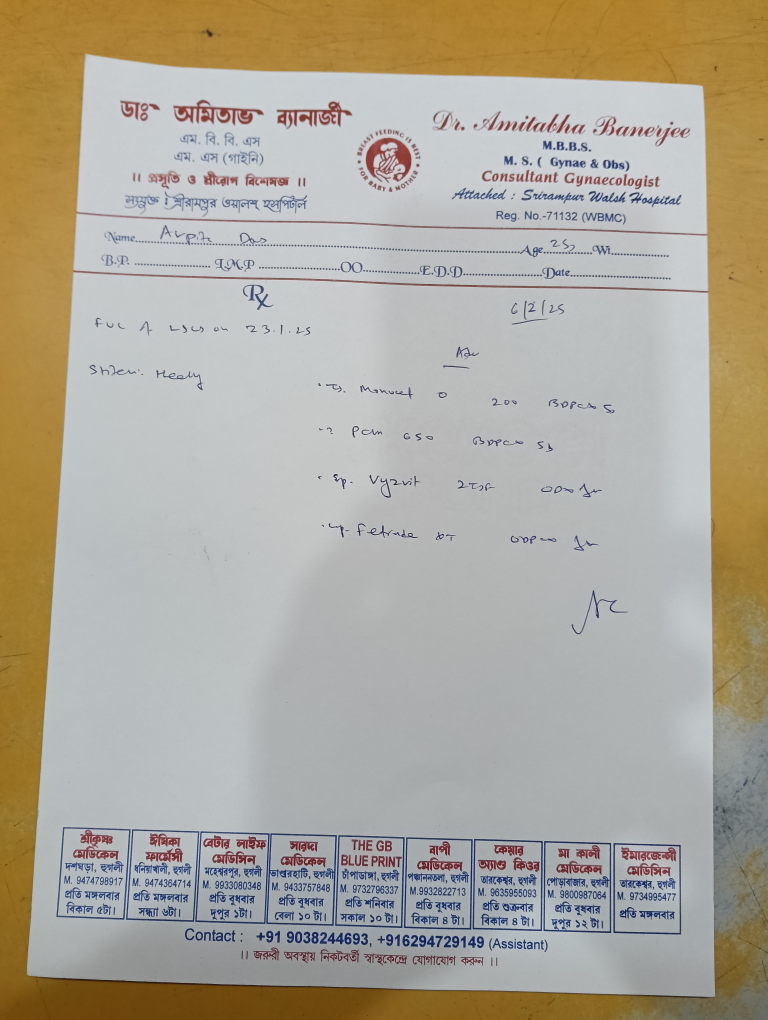 ডাঃ অমিতাভ ব্যানার্জী
এম. বি. বি. এস
এম. এস (গাইনি)
।। প্রসূতি ও স্ত্রীরোগ বিশেষজ্ঞ ।।
সংযুক্ত : শ্রীরামপুর ওয়ালশ্ হসপিটাল
BREAST FEEDING IS BEST FOR BABY & MOTHER
Dr. Amitabha Banerjee
M.B.B.S.
M. S. ( Gynae & Obs)
Consultant Gynaecologist
Attached : Srirampur Walsh Hospital
Reg. No.-71132 (WBMC)
Name Arpita Das Age 25 Wt
B.P. L.M.P OO E.D.D Date
Rx
6/2/25
on 23.1.25
Adv
Healy
200 BDPC
PCM 650 BDPC
Sp. Vyzvit 2TSF
XT ODPC
শ্রীকৃষ্ণ মেডিকেল
দশঘড়া, হুগলী
M. 9474798917
প্রতি মঙ্গলবার
বিকাল ৫টা।
ঈষিকা ফার্মেসী
ধনিয়াখালী, হুগলী
M. 9474364714
প্রতি মঙ্গলবার
সন্ধ্যা ৬টা।
বেটার লাইফ মেডিসিন
মহেশ্বরপুর, হুগলী
M. 9933080348
প্রতি বুধবার
দুপুর ১টা।
সারদা মেডিকেল
ভাণ্ডারহাটি, হুগলী
M. 9433757848
প্রতি বুধবার
বেলা ১০ টা।
THE GB BLUE PRINT
চাঁপাডাঙ্গা, হুগলী
M. 9732796337
প্রতি শনিবার
সকাল ১০ টা।
বাপী মেডিকেল
পঞ্চাননতলা, হুগলী
M.9932822713
প্রতি বুধবার
বিকাল ৪ টা।
কেয়ার অ্যাণ্ড কিওর
তারকেশ্বর, হুগলী
M. 9635955093
প্রতি শুক্রবার
বিকাল ৪ টা।
মা কালী মেডিকেল
পোড়াবাজার, হুগলী
M. 9800987064
প্রতি বুধবার
দুপুর ১২ টা।
ইমারজেন্সী মেডিসিন
তারকেশ্বর, হুগলী
M. 9734995477
প্রতি মঙ্গলবার
Contact : +91 9038244693, +916294729149 (Assistant)
।। জরুরী অবস্থায় নিকটবর্তী স্বাস্থ্যকেন্দ্রে যোগাযোগ করুন ।।